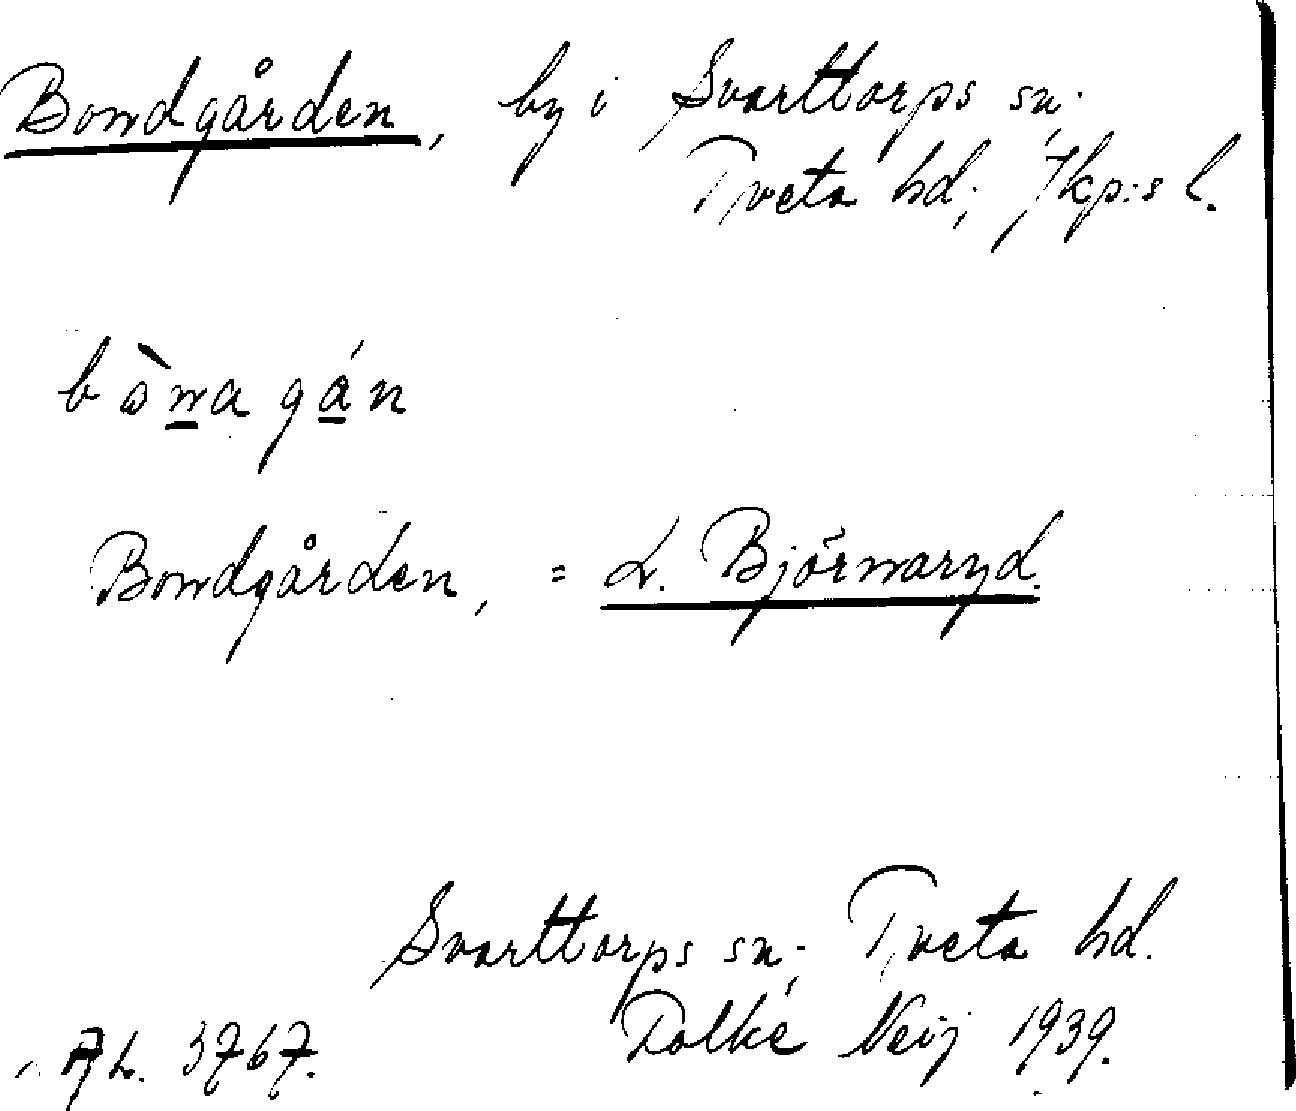 Bondgården, by i Svarttorps sn.,
Tveta hd., Jkp:s l.
bònagán
Bondgården, = L. Björnaryd.
Svarttorps sn., Tveta hd.
3767. Tolke Neij 1939.